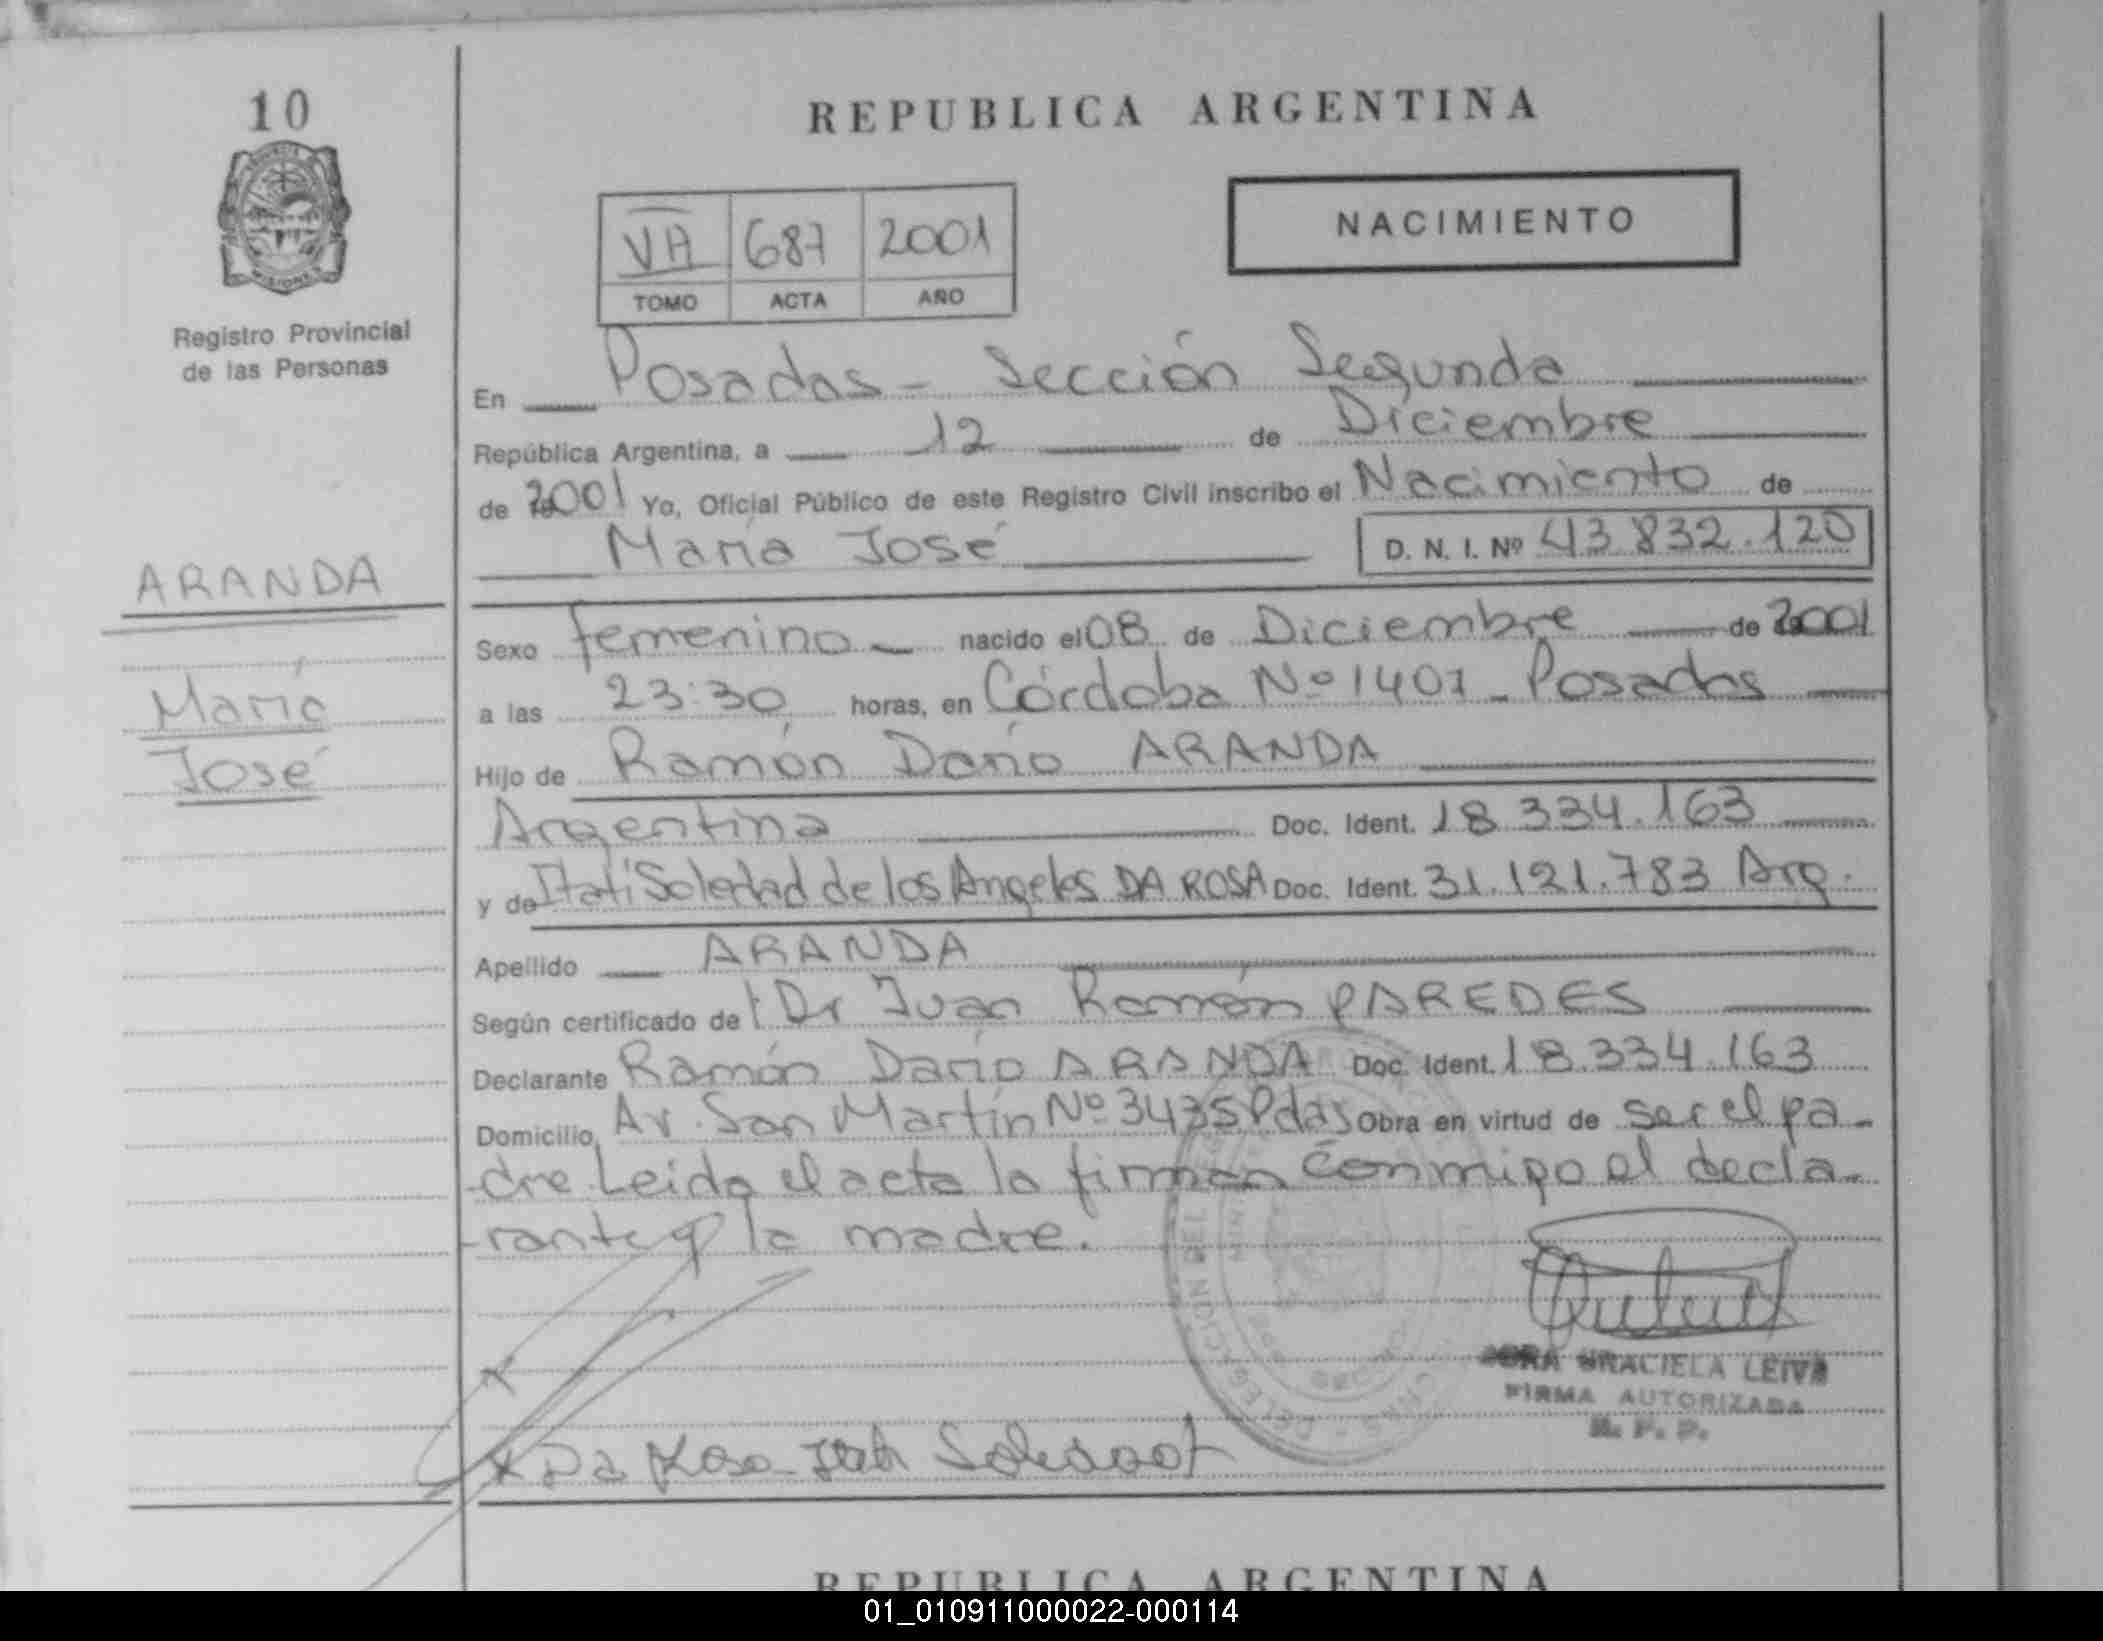 10
REPUBLICA ARGENTINA
NACIMIENTO
VA 687 2001
TOMO ACTA AÑO
Registro Provincial
de las Personas
En Posadas - Sección Segunda
República Argentina, a 12 de Diciembre
de 2001 Yo, Oficial Público de este Registro Civil inscribo el Nacimiento de
María José D. N. I. Nº 43.832.120
ARANDA
María
José
Sexo femenino - nacido el 08 de Diciembre de 2001
a las 23:30 horas, en Córdoba Nº 1401 - Posadas
Hijo de Ramón Darío ARANDA
Argentina Doc. Ident. 18.334.163
y de Itatí Soledad de los Angeles DA ROSA Doc. Ident. 31.121.783 Arg.
Apellido ARANDA
Según certificado de Dr Juan Ramón PAREDES
Declarante Ramón Darío ARANDA Doc. Ident. 18.334.163
Domicilio Av. San Martín Nº 3435 Pdas Obra en virtud de ser el pa-
-dre. Leida el acta la firman conmigo el decla-
-rante y la madre.
GRACIELA LEIVA
FIRMA AUTORIZADA
R. P. P.
Da Rosa Itati Soledad
REPUBLICA ARGENTINA
01_010911000022-000114